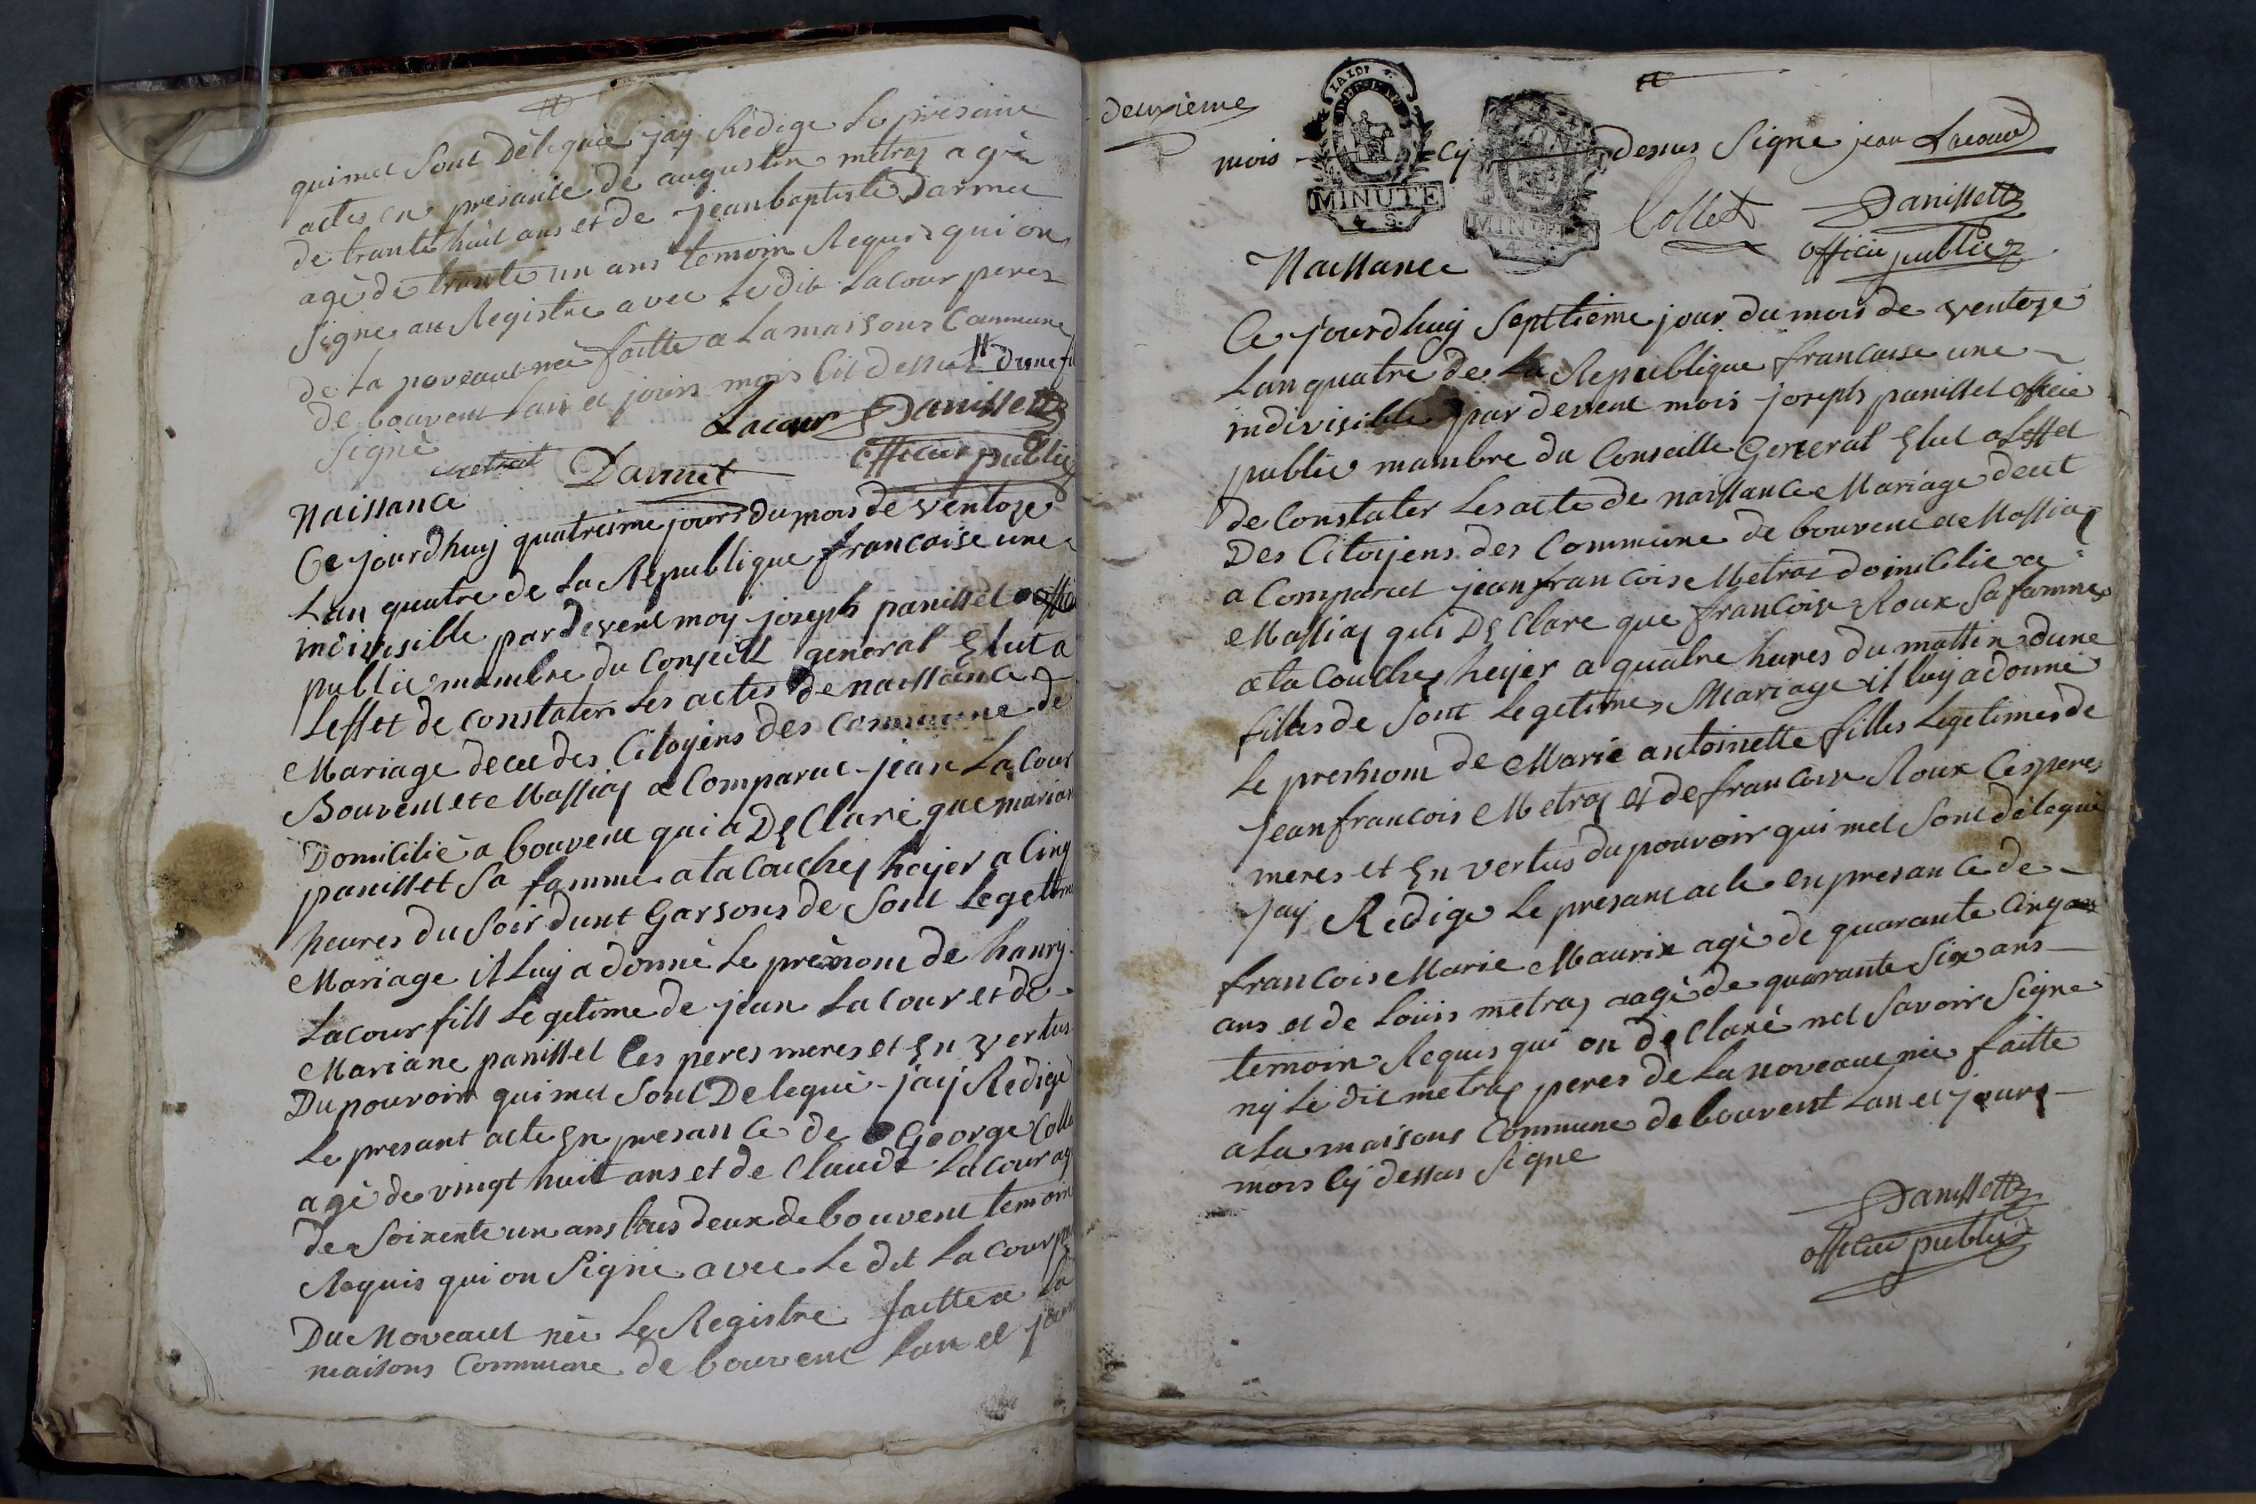 qui met Sont Deleguée jay Redige Le presant
actes en presante de augustin metras agé
de trante huit ans et de jean baptiste Darmet
agé de trante un ans temoin Requis qui on
Signe au Registre avec Le dit Lacour peres
de La noveaut née faitte a La maisons Commune
de bouvent Lan et jours mois Cit Dessus # dune fi
Signé Lacour Panissett
extrait Darmet officier public
Naissance
Ce jourdhuy quatrieme jours du mois de Ventoze
Lan quatre de La Republique francaise une
indivisible pardevent moy joseph panissel offi
public mambre du Conseill general Elut a
Leffet de constater Les actes de naissance
Mariage decee des Citoyens des commune de
Bouvent et Massiaz a Comparut jean La Cour
Domicilié a bouvent qui a DeClaré que marian
panisset Sa famme a ta Couchez heyer a Cinq
heures du Soir dunt Garsons de Sont Legetime
Mariage il Luy a donné Le prenom de hanry
Lacour fill Legetime de jean La Cour et de
Mariane panissel Ces peres meres et En Vertus
Du pouvoir qui met Sont Delegué jay Redigé
Le presant acte En presance de George Colle
agé de vingt huit ans et de Claude La Cour ag
de Soixente un ans tous deux de bouvent temoin
Requis qui on Signe avec Le dit La Cour pe
Du Noveaut née Le Registre faitte a La
maisons Commune de bouvent Lan et jours
deuxième
LA LOI
MINUTE
4 S.
MINUTE
mois Cy dessus Signe jean Lacour
Collet Panissett
officier public
Naissance
Ce jourdhuy Septtieme jour du mois de ventoze
Lan quatre de La Republique francaise une
indivisible par devent mois joseph panissel officie
public mambre du Conseille General Elut a Leffet
de Constater Les acte de naissance Mariage decet
Des Citoyens des Commune de bouvent et Massiaz
a Comparut jean francoise Metras doimilie a
Massiaz qui DeClare que francoise Roux Sa famme
a ta Couchez heyer a quatre hures du mattin dune
filles de Sont Legetime Mariage il luy a donné
Le preshnom de Marie antoinette filles Legetimes de
jean francois Metraz et de francoise Roux Ces peres
meres et En vertus du pouvoir qui met Sont délegué
jay Redige Le presant acte en presance de
francois Marie Maurix agé de quarante Cinq ans
ans et de Louis metraz aagé de quarante Six ans
temoin Requis qui on deClaré net Savoir Signé
ny Le dit metraz peres de La noveaut née faitte
a La maisons Commune de bouvent Lan et jours
mois Cy dessus Signe
Panissett
officier public